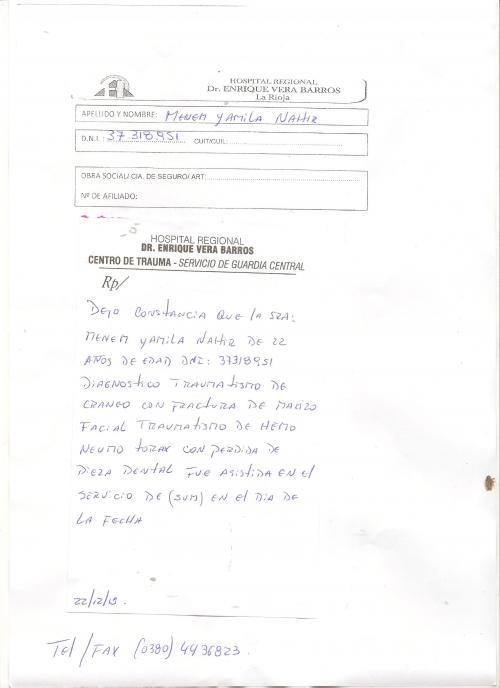 HOSPITAL REGIONAL
Dr. ENRIQUE VERA BARROS
La Rioja
APELLIDO Y NOMBRE: MENEM YAMILA NAHIR
D.N.I.: 37.318.951 CUIT/CUIL:
OBRA SOCIAL/ CIA. DE SEGURO/ ART:
Nº DE AFILIADO:
HOSPITAL REGIONAL
DR. ENRIQUE VERA BARROS
CENTRO DE TRAUMA - SERVICIO DE GUARDIA CENTRAL
Rp/
DEJO CONSTANCIA QUE LA SRA:
MENEM YAMILA NAHIR DE 22
AÑOS DE EDAD DNI: 37318951
DIAGNOSTICO TRAUMATISMO DE
CRANEO CON FRACTURA DE MACIZO
FACIAL TRAUMATISMO DE HEMO
NEUMO TORAX CON PERDIDA DE
PIEZA DENTAL FUE ASISTIDA EN EL
SERVICIO DE (SUM) EN EL DIA DE
LA FECHA
22/12/15.
TEL/FAX (0380) 4436823.